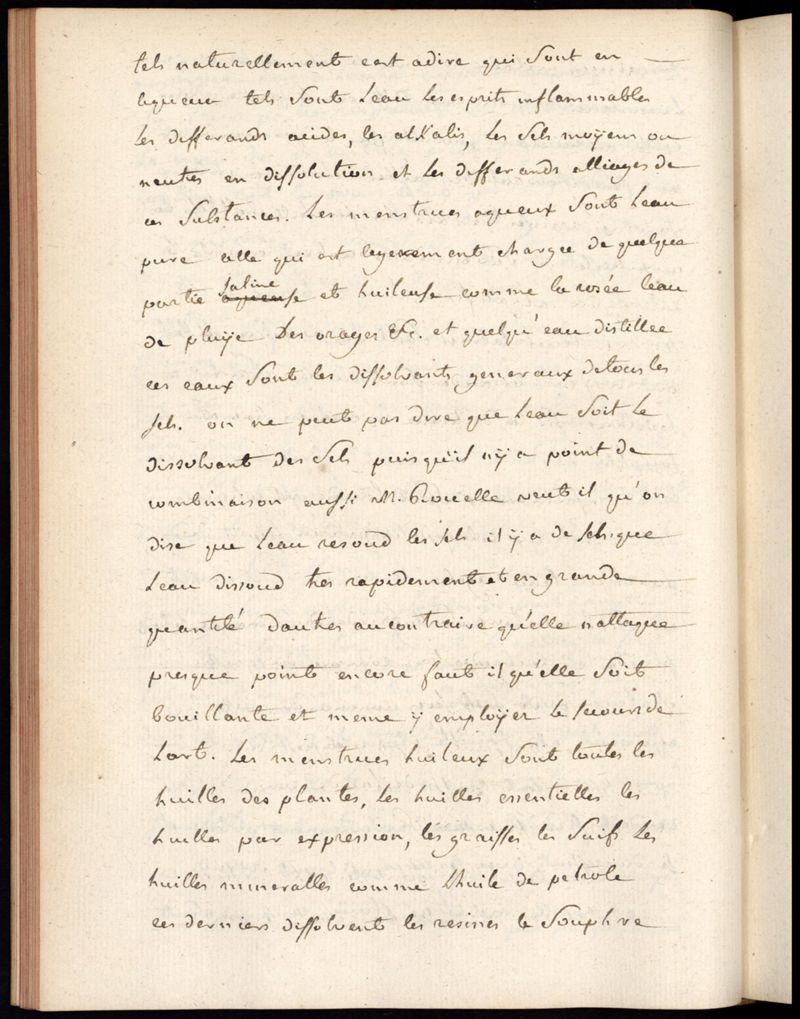 tels naturellement cest adire qui Sont en
liqueur tels Sont Leau Les esprits inflammables
Les differands acides, les alkalis, Les Sels moÿens ou
neutres en dissolution et Les differands alliages de
ces Substances. Les menstrues aqueux Sont Leau
pure celle qui est legerement chargée de quelque
partie aqueuse saline et huileuse comme la rosée leau
de pluÿe Des orages &c. et quelqu'eau distillee
ces eaux Sont les dissolvants generaux detous les
sels. on ne peut pas dire que Leau Soit Le
dissolvant des Sels puisqu'il nÿ a point de
combinaison aussi M. Rouelle veut il qu'on
dise que Leau resoud les sels il ÿ a de sels que
Leau dissoud tres rapidement et en grande
quantité dautres aucontraire qu'elle nattaque
presque point encore faut il qu'elle Soit
bouillante et meme ÿ emploÿer le secours de
Lart. Les menstrues huileux Sont toutes les
huilles des plantes, Les huilles essentielles les
huilles par expression, les graisses les Suifs Les
huilles mineralles comme Lhuile de petrole
ces derniers dissolvent les resines le Souphre